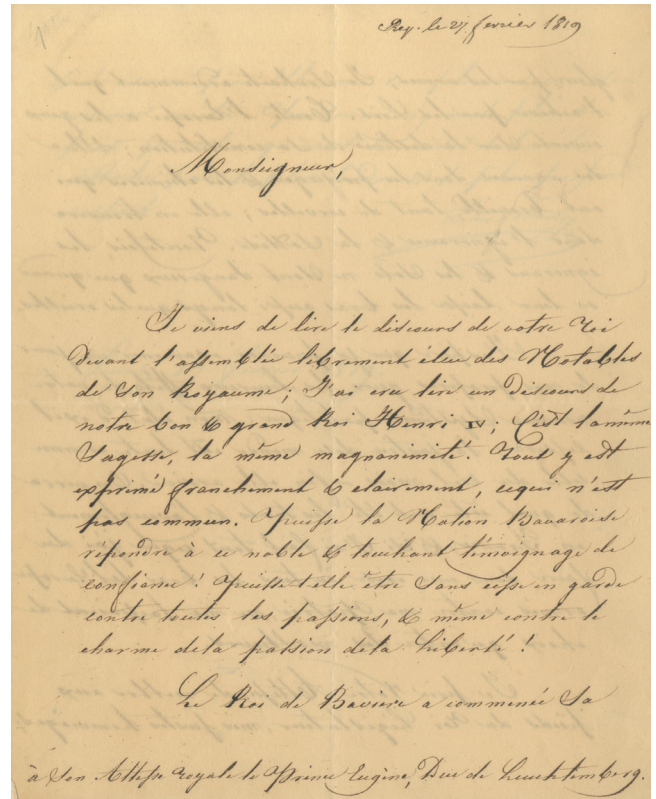 Rey. le 27 fevrier 1819
Monseigneur,
Je viens de lire le discours de votre roi
devant l'assemblée librement élue des Notables
de son Royaume; J'ai cru lire un discours de
notre bon & grand Roi Henri IV; C'est la même
Sagesse, la même magnanimité. Tout y est
exprimé franchement & clairement, cequi n'est
pas commun. Puisse la Nation Bavaroise
répondre à ce noble & touchant témoignage de
confiance! Puisse-t-elle être sans cesse en garde
contre toutes les passions, & même contre le
charme dela passion dela Liberté!
Le Roi de Bavière a commencé Sa
à Son Altesse royale le Prince Eugène, Duc de Leuchtemberg.